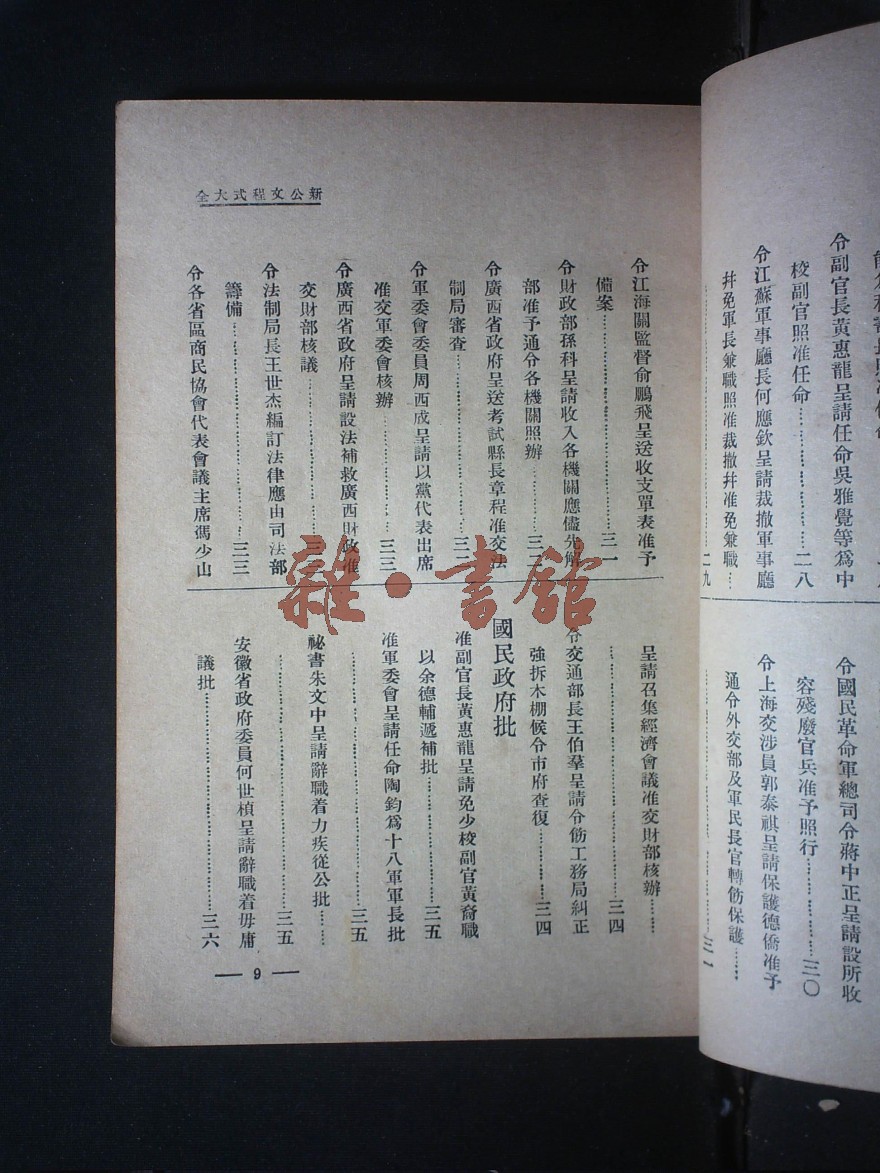 令副官長黃惠龍呈請任命吳雅覺等爲中
校副官照准任命…………二八
令江蘇軍事廳長何應欽呈請裁撤軍事廳
幷免軍長兼職照准裁撤幷准免兼職…
…………二九
令國民革命軍總司令蔣中正呈請設所收
容殘廢官兵准予照行…………三〇
令上海交涉員郭泰祺呈請保護德僑准予
通令外交部及軍民長官轉飭保護……
…………三一
新公文程式大全
令江海關監督俞鵬飛呈送收支單表准予
備案…………三一
令財政部孫科呈請收入各機關應儘先解
部准予通令各機關照辦…………三二
令廣西省政府呈送考試縣長章程准交法
制局審查…………三二
令軍委會委員周西成呈請以黨代表出席
准交軍委會核辦…………三三
令廣西省政府呈請設法補救廣西財政准
交財部核議…………三三
令法制局長王世杰編訂法律應由司法部
籌備…………三三
令各省區商民協會代表會議主席馮少山
呈請召集經濟會議准交財部核辦……
…………三四
令交通部長王伯羣呈請令飭工務局糾正
強拆木棚候令市府查復…………三四
國民政府批
准副官長黃惠龍呈請免少校副官黃裔職
以余德輔遞補批…………三五
准軍委會呈請任命陶鈞爲十八軍軍長批
…………三五
祕書朱文中呈請辭職着力疾從公批……
…………三五
安徽省政府委員何世楨呈請辭職着毋庸
議批…………三六
— 9 —
雜·書館